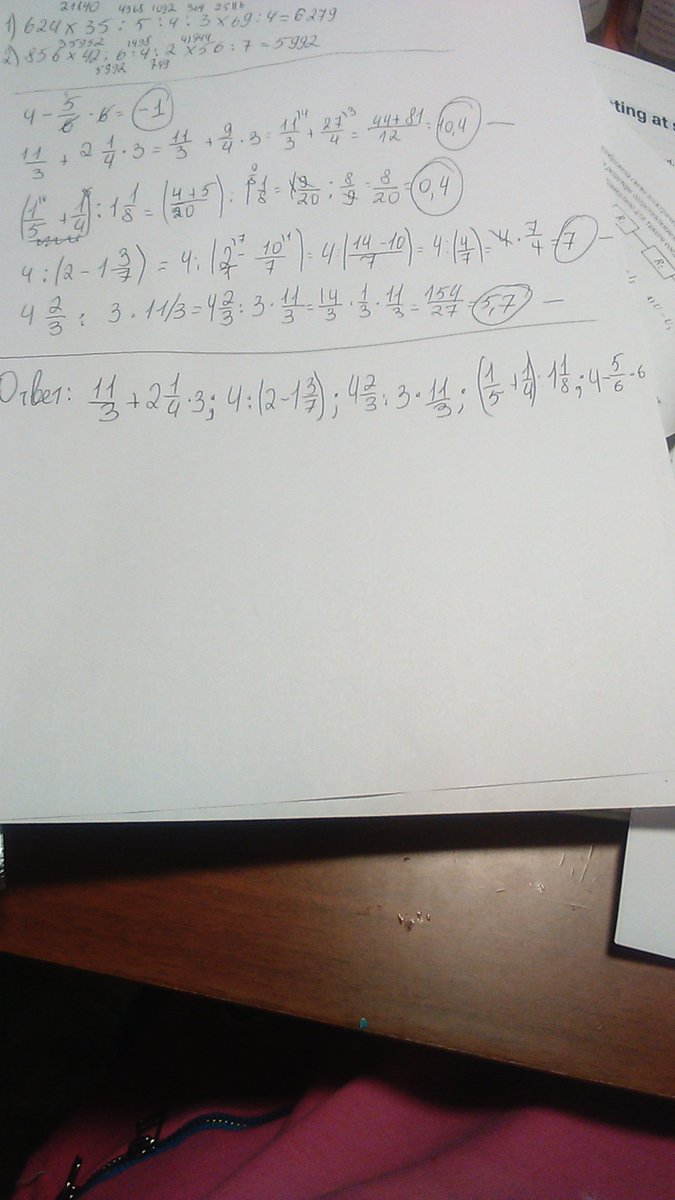 21840 4368 1092 364 25116
1) 624 × 35 : 5 : 4 : 3 × 69 : 4 = 6279
35952 1498 41944
2) 856 × 42 : 6 : 4 : 2 × 56 : 7 = 5992
5992 749
4 - 5/6 · 6 = -1
11/3 + 2 1/4 · 3 = 11/3 + 9/4 · 3 = 11/3 + 27/4 = 44+81/12 = 10,4 —
(1/5 + 1/4) : 1 1/8 = (4+5/20) : 1 1/8 = 9/20 : 8/9 = 8/20 = 0,4
4 : (2 - 1 3/7) = 4 : (2 - 10/7) = 4 : (14-10/7) = 4 : (4/7) = 4 · 7/4 = 7 —
4 2/3 : 3 · 11/3 = 4 2/3 : 3 · 11/3 = 14/3 · 1/3 · 11/3 = 154/27 = 5,7 —
Ответ: 11/3 + 2 1/4 · 3; 4 : (2 - 1 3/7); 4 2/3 : 3 · 11/3; (1/5 + 1/4) · 1 1/8; 4 - 5/6 · 6
ting at